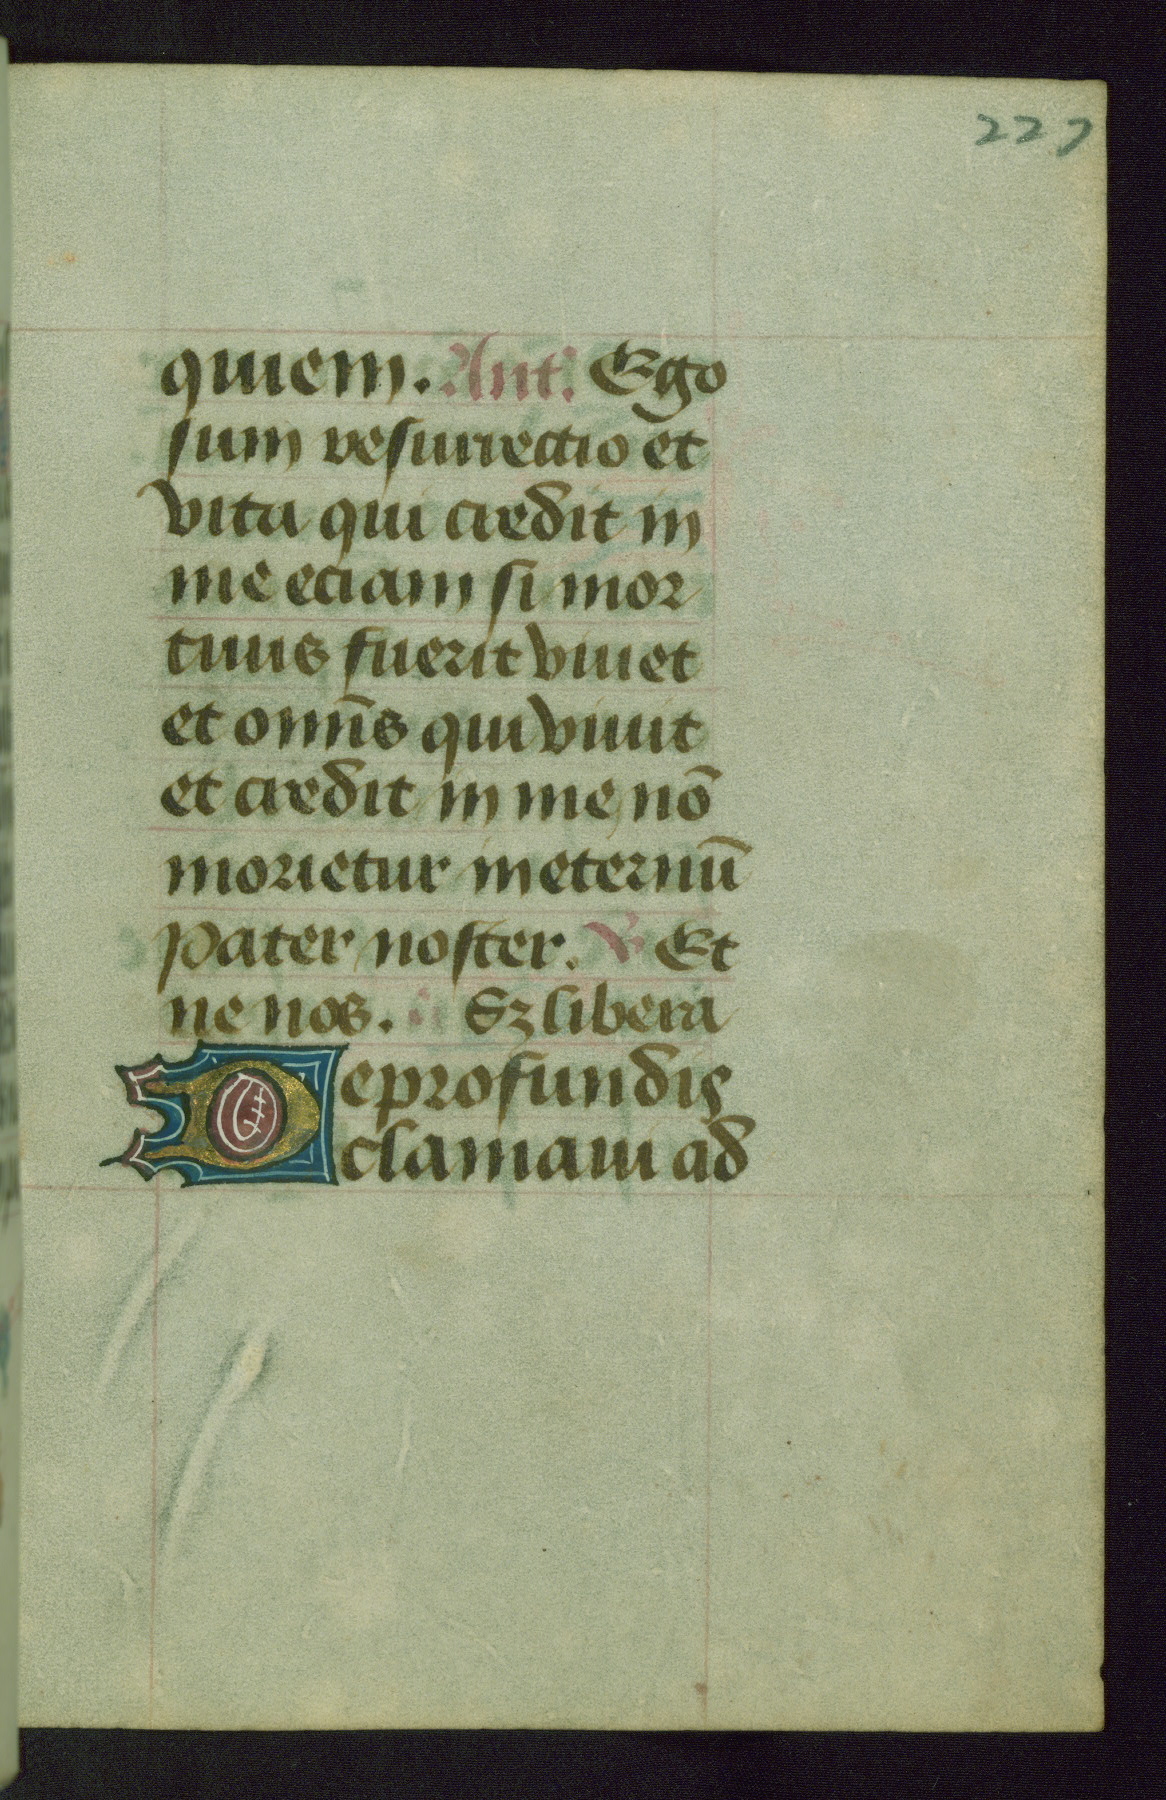 227
quiem. Ant'. Ego
sum resurrectio et
vita qui credit in
me eciam si mor
tuus fuerit viuet
et om̄s qui viuit
et credit in me nō
morietur in eternū
Pater noster. ℣ Et
ne nos. Sz libera
De profundis
clamaui ad